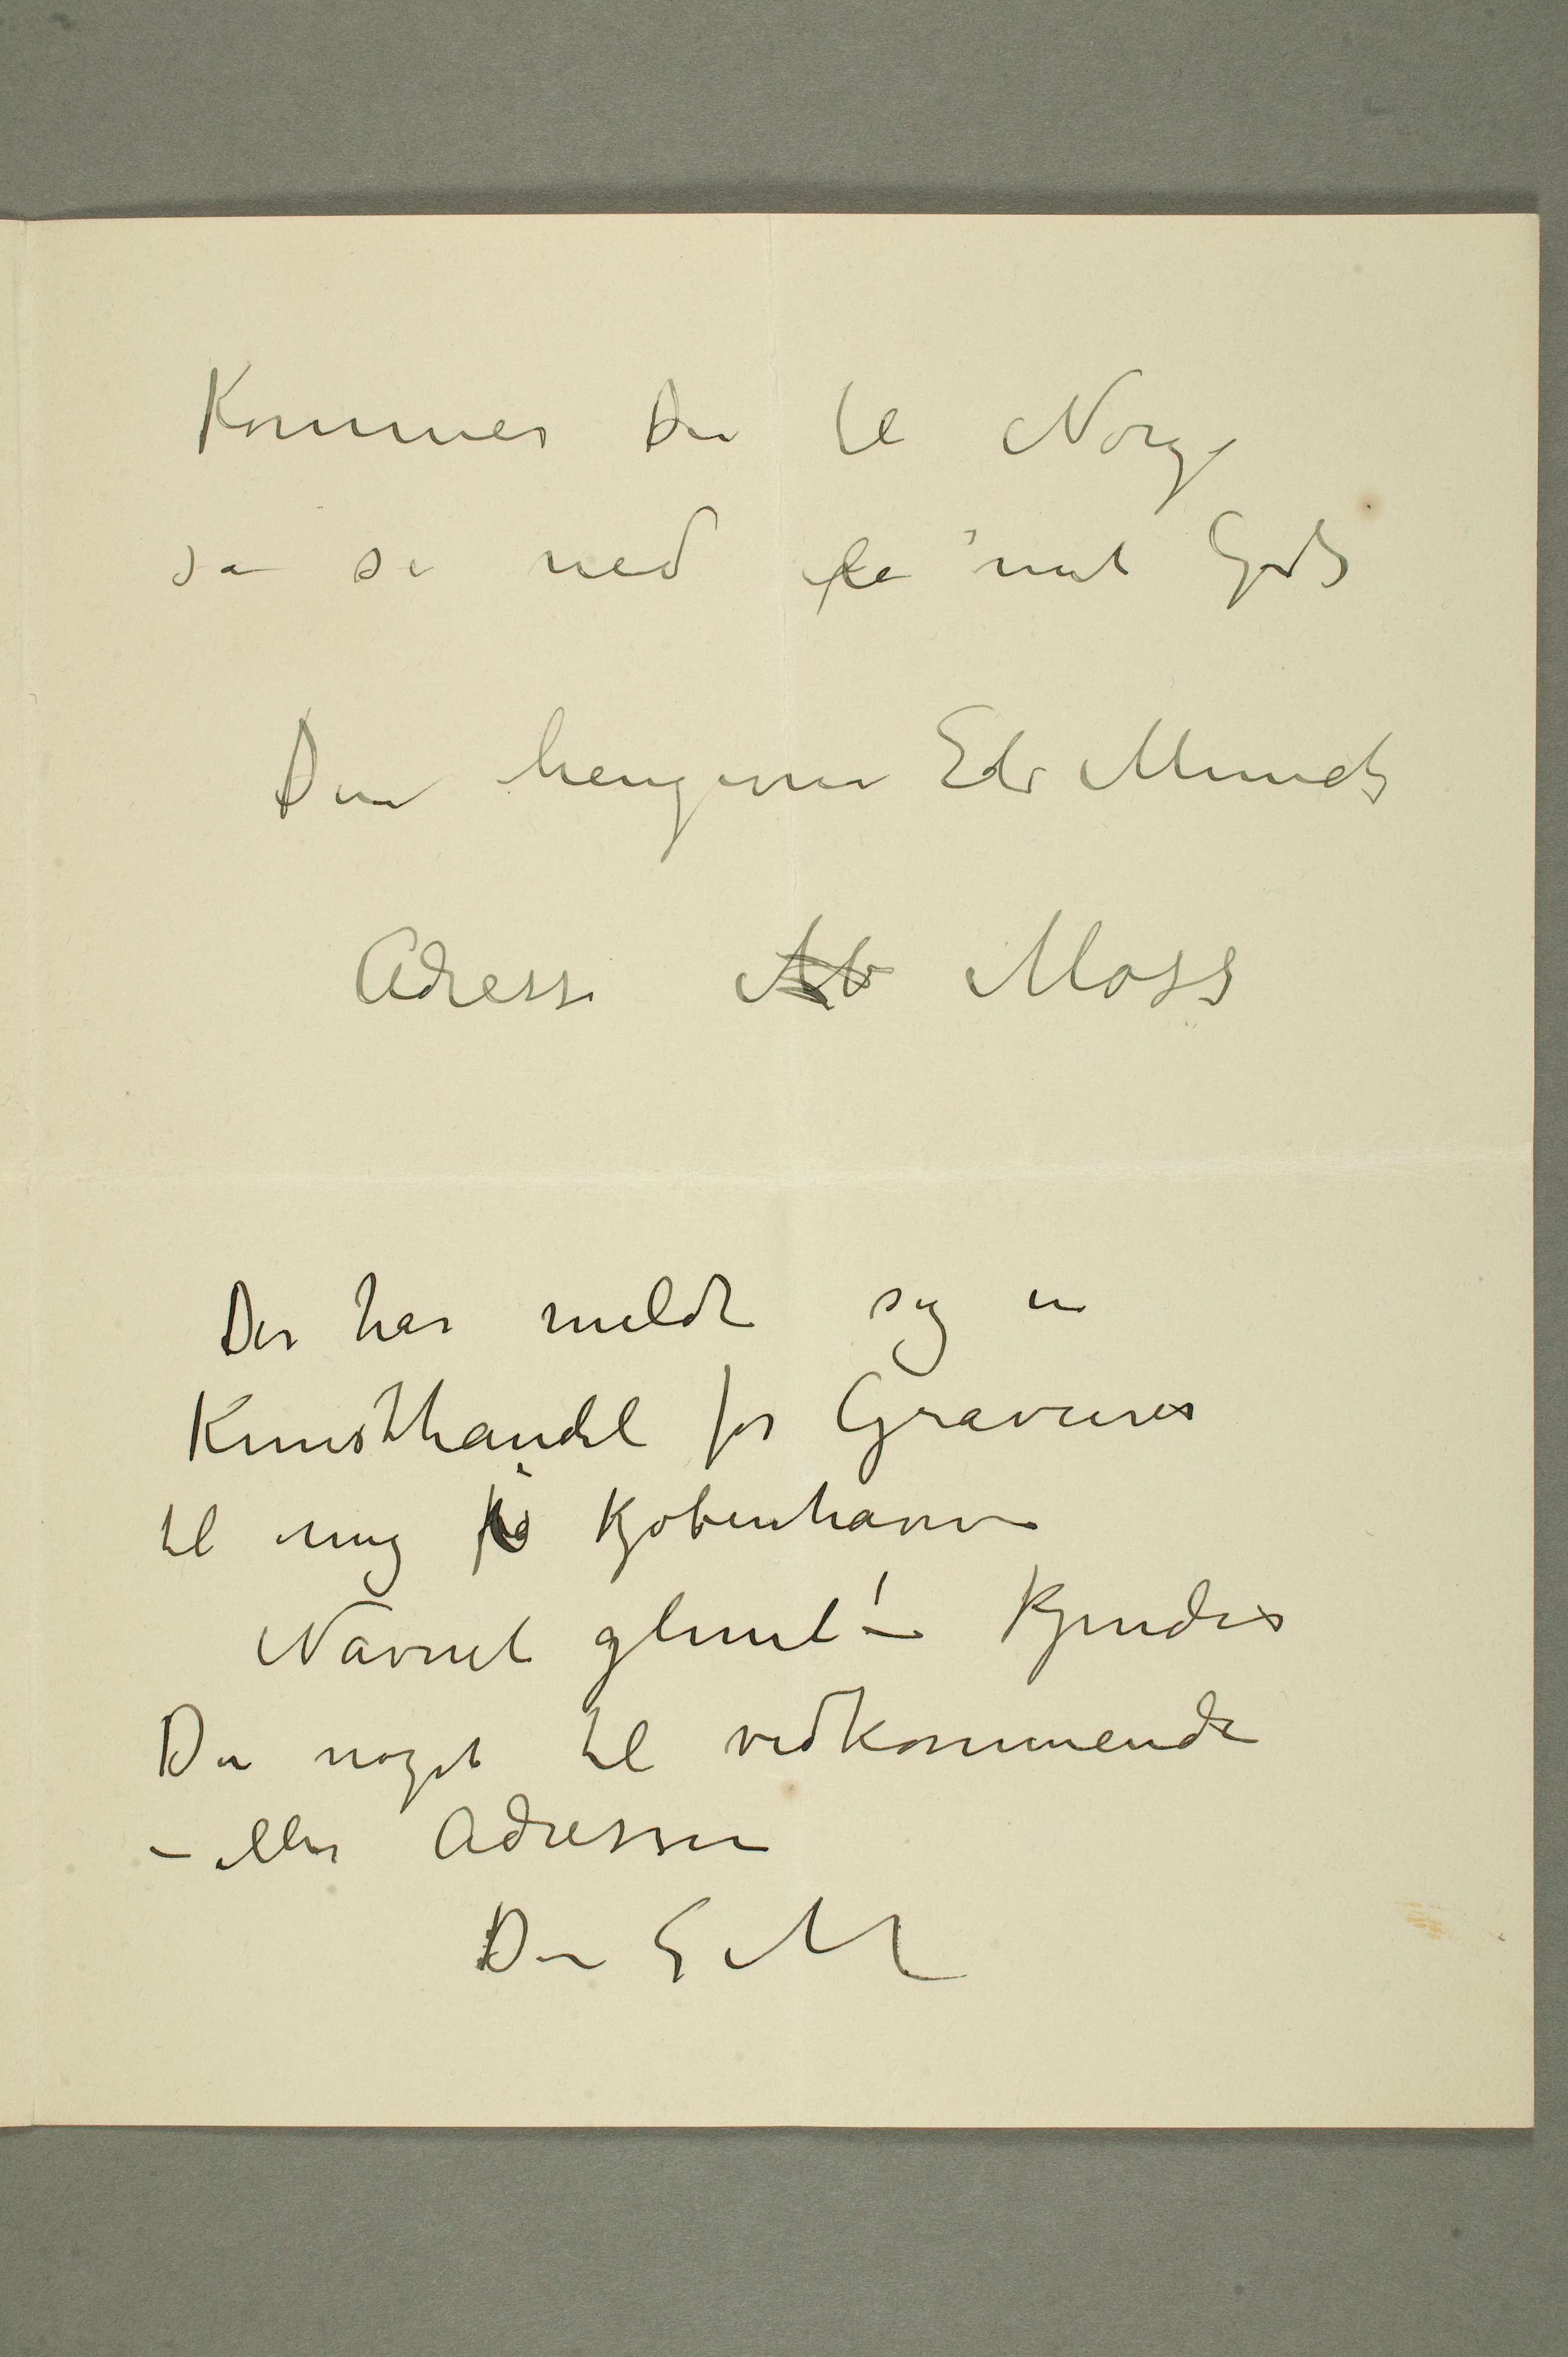 Kommer Du til Norge
så se ned på mit Gods
Din hengivne Edv Munch
Adresse Moss
Der har meldt sig en
Kunsthandel for Gravures
til mig på Kjøbenhavn
Navnet glemt! – Kjender
Du noget til vedkommende
– eller Adressen
Din E M